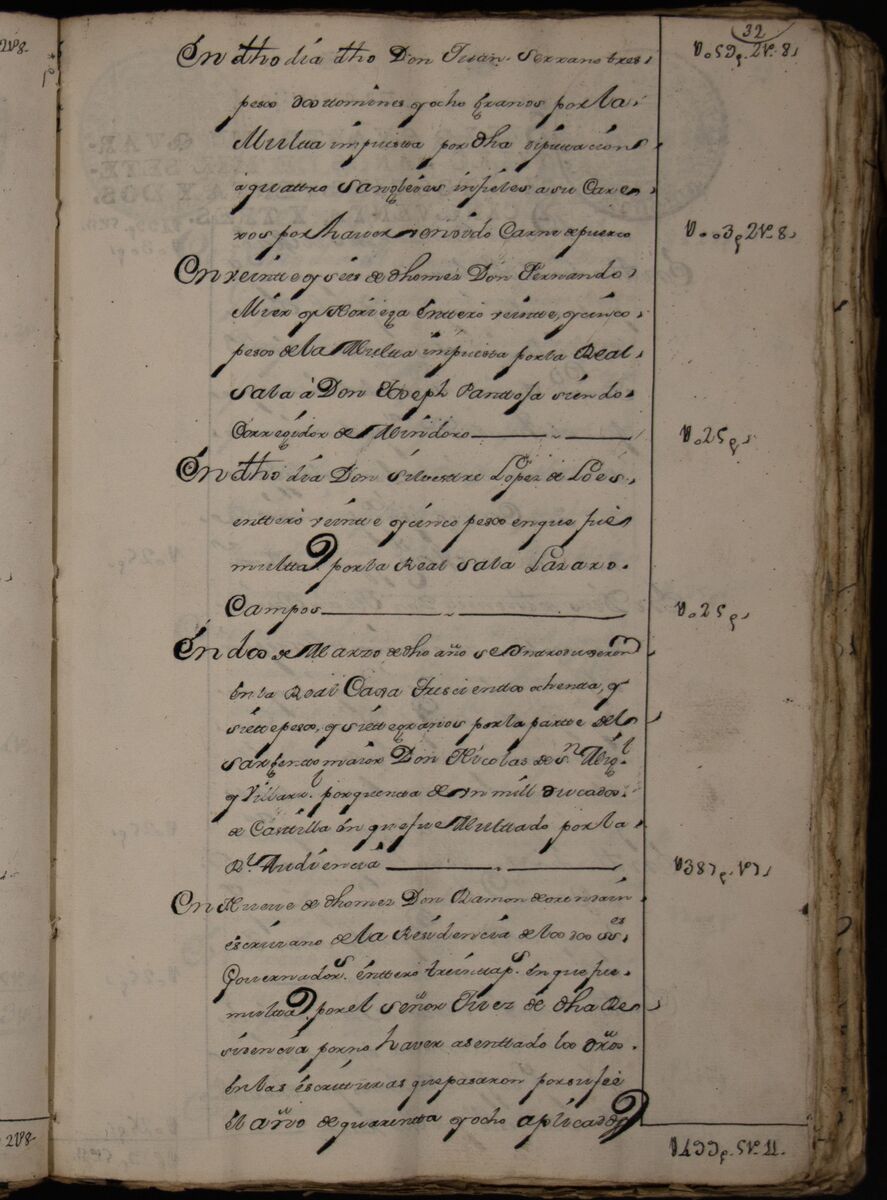 32
En dho dia dho Don Juan Serrano tres
pesos dos ttomines y ocho granos por la
Multta impuesta por dha diputacion
a quattro Sangleyes infieles a su Care
ros por haver vendido Carne de puerco
En veintte y seis de dho mez Don Fernando
Mier y Noriega Enttero veintte, y cinco
pesos de la Multta impuesta por la Real
Sala à Don Joseph Panttoja siendo
Corregidor de Mindoro
V.o25p.s
En dho dia Don Silvestre Lopez de Loes
enttero veintte y cinco pesos en que fue
multtado por la Real Sala Lazaro
Campos
V.o25p.s
En dos de Marzo de dho año se Yntrodugeron
En la Real Caxa Trescienttos ochenta, y
siette pesos, y siette granos por la partte del
Sargentto maior Don Nicolas de Sn Migl
y Villarl. por quenta de Un mill ducados
de Casttilla En que fue Multtado por la
Rl. Audiencia
En Nueve de dho mez Don Ramon de Orendain
escrivano de la Residencia de los dos SSes
Governadors. enttero treintta ps. En que fue
multtado por el Señor Juez de dha Re
sidencia por no haver asenttado los
En las escritturas que pasaron por su fee
El año de quarentta y ocho aplicados